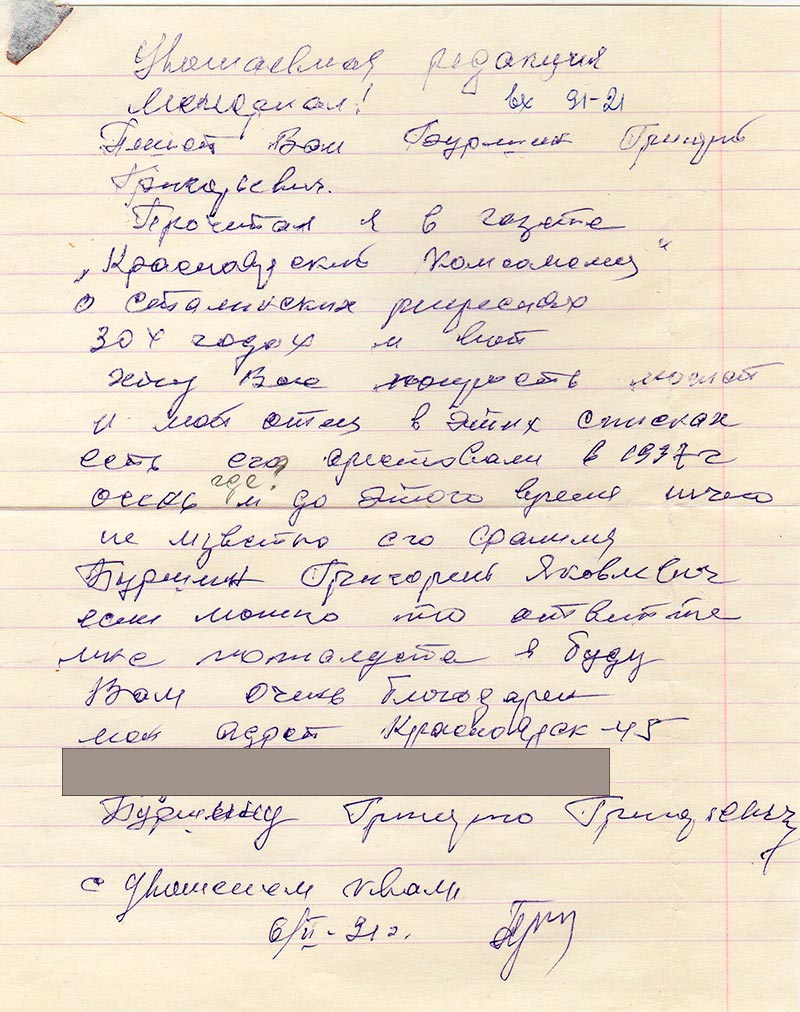 Уважаемая редакция
Мемориал! вх 91-21
Пешот Вам Бурмин Григорий
Григорьевич.
Прочитал я в газете
„Красноярский комсомолец“
о сталинских репресиях
30х годах и вот
хочу Вас попросить может
и мой отец в этих списках
есть его арестовали в 1937 г
осень где и до этого время ничего
не известно его фамилия
Бурмин Григорий Яковлевич
если можно то ответьте
мне пожалуста я буду
Вам очень благодарен
мой адрес Красноярск-45
Бурмину Григорию Григорьевичу
с уважением к вам
6/II-91 г.